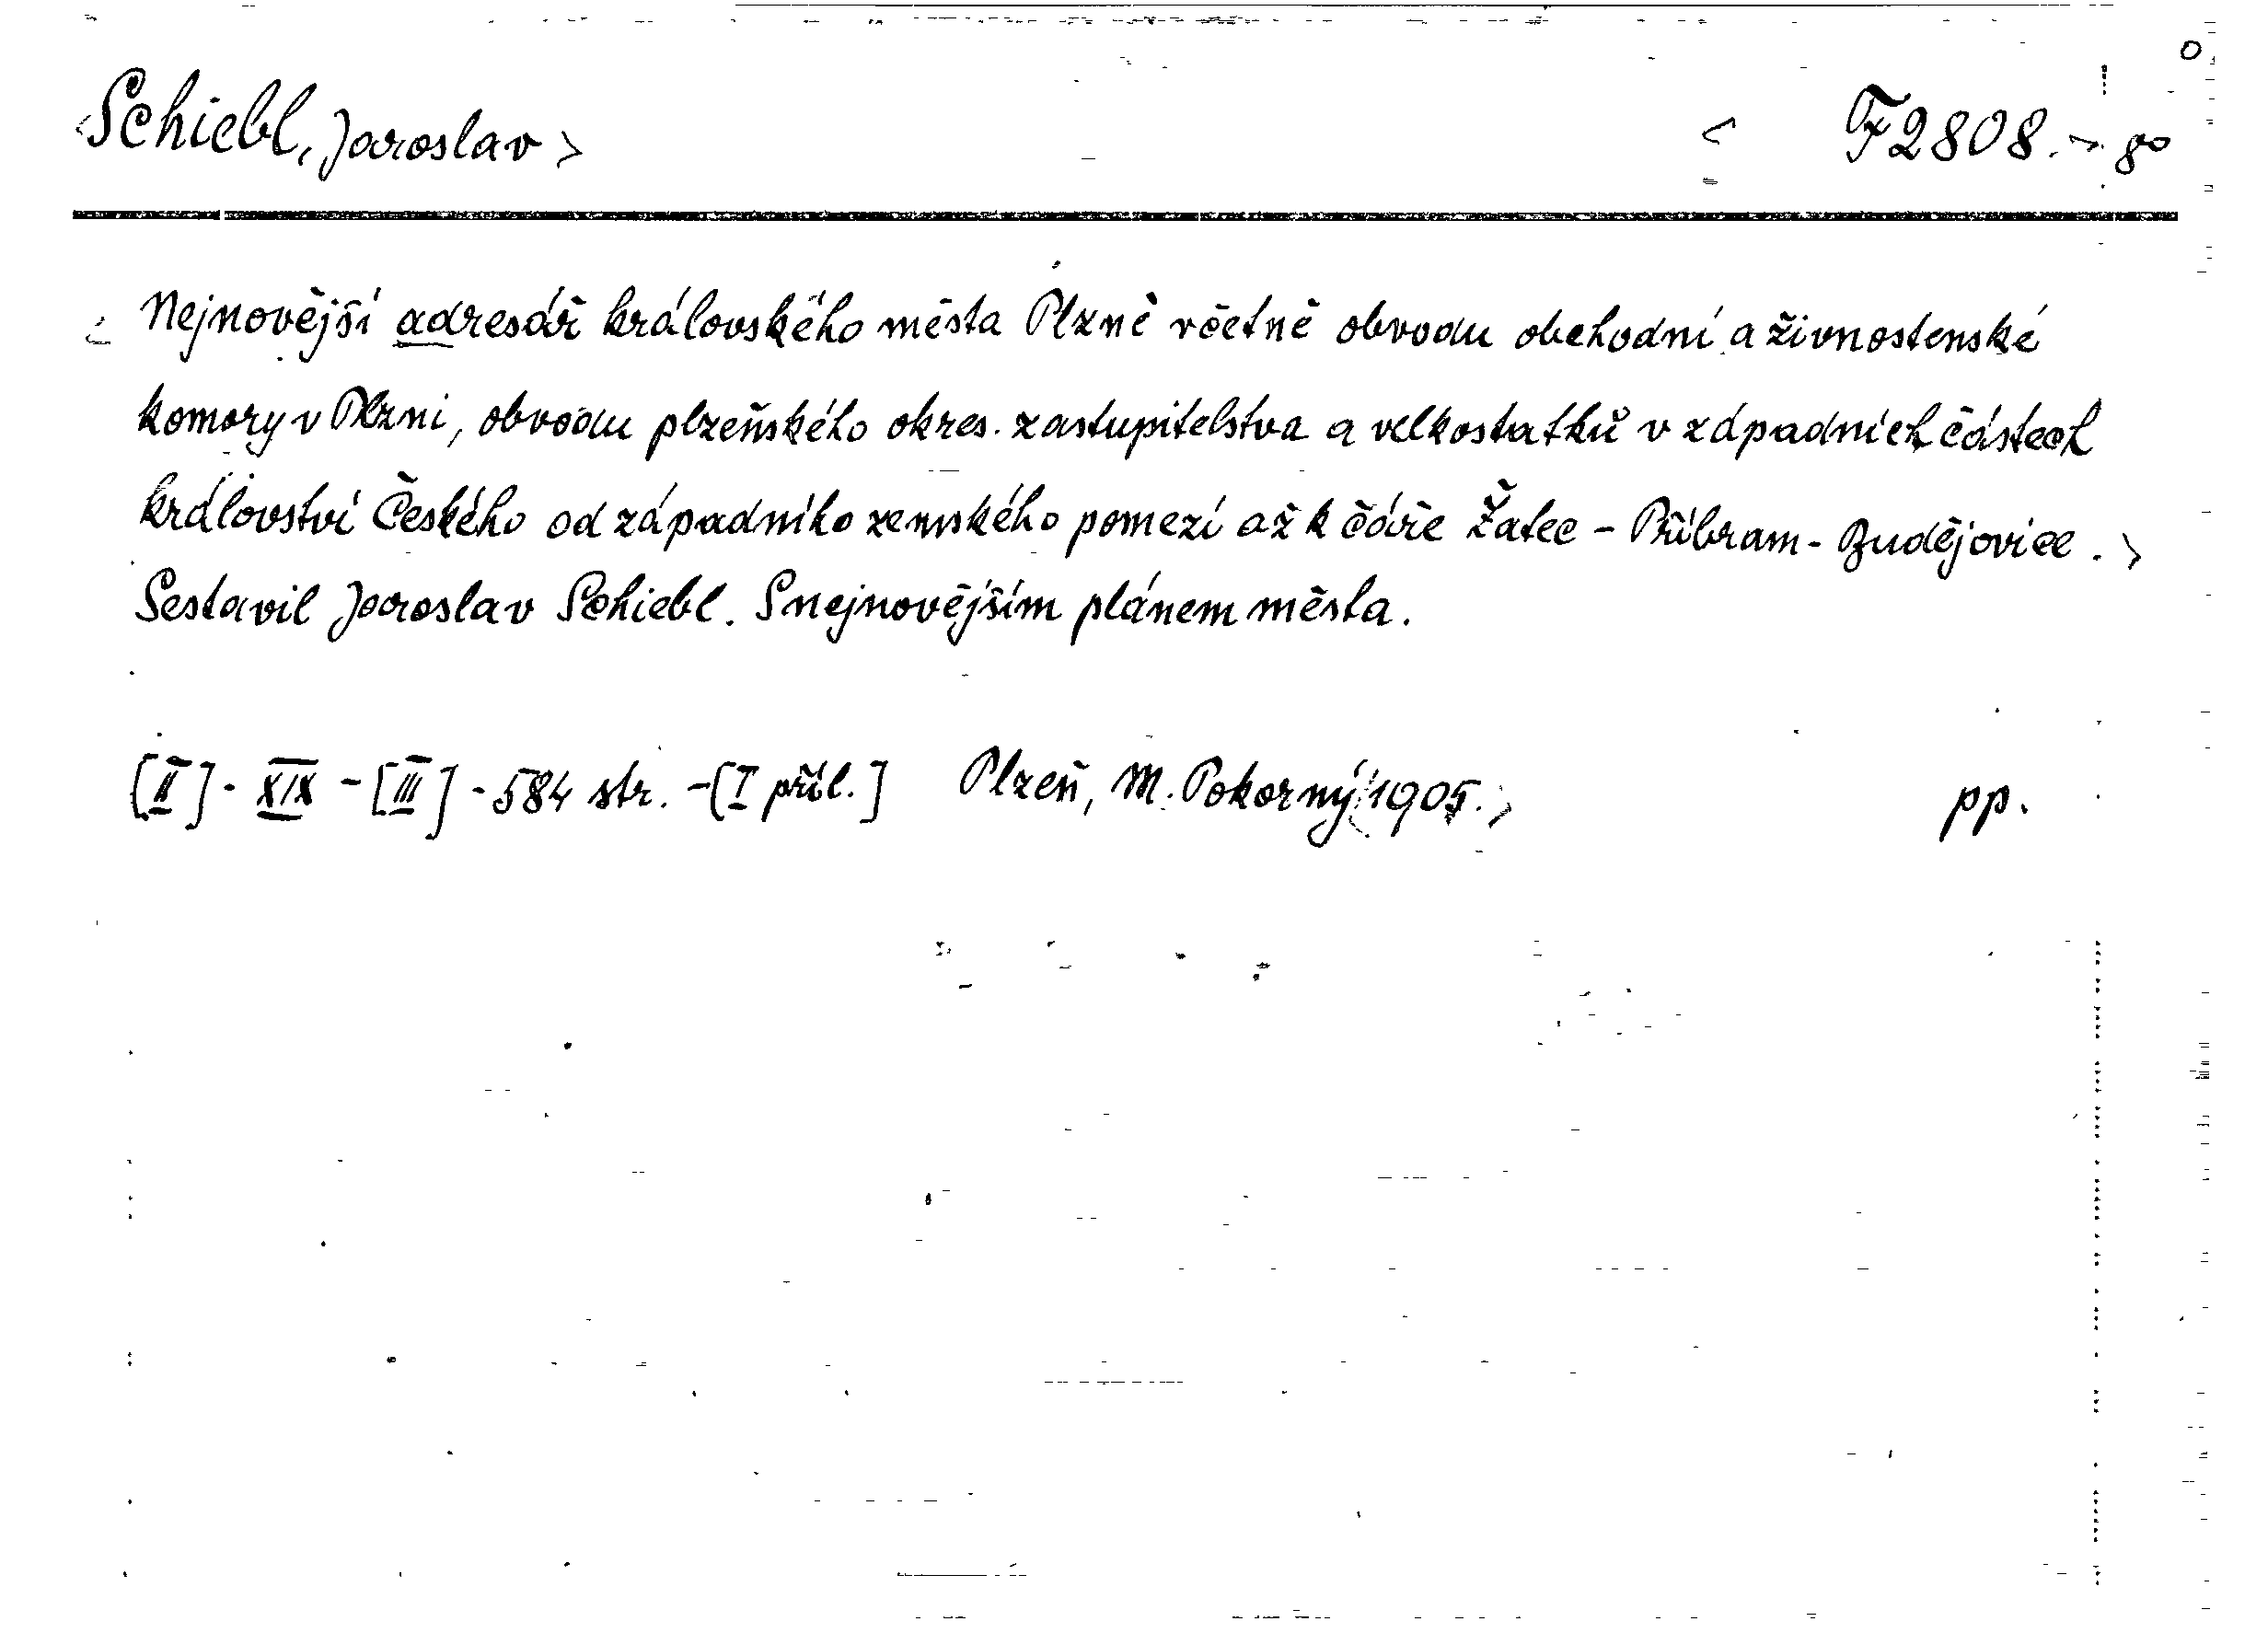 <Schiebl, Jaroslav> < F2808. > 8°
< Nejnovější adresář královského města Plzně včetně obvodu obchodní a živnostenské
komory v Plzni, obvodu plzeňského okres. zastupitelstva a velkostatků v západních částech
království Českého od západního zemského pomezí až k čáře Žatec - Příbram - Budějovice. >
Sestavil Jaroslav Schiebl. S nejnovějším plánem města.
[II] - XIX - [III] - 584 str. - [I příl.] Plzeň, M. Pokorný <1905. > pp.